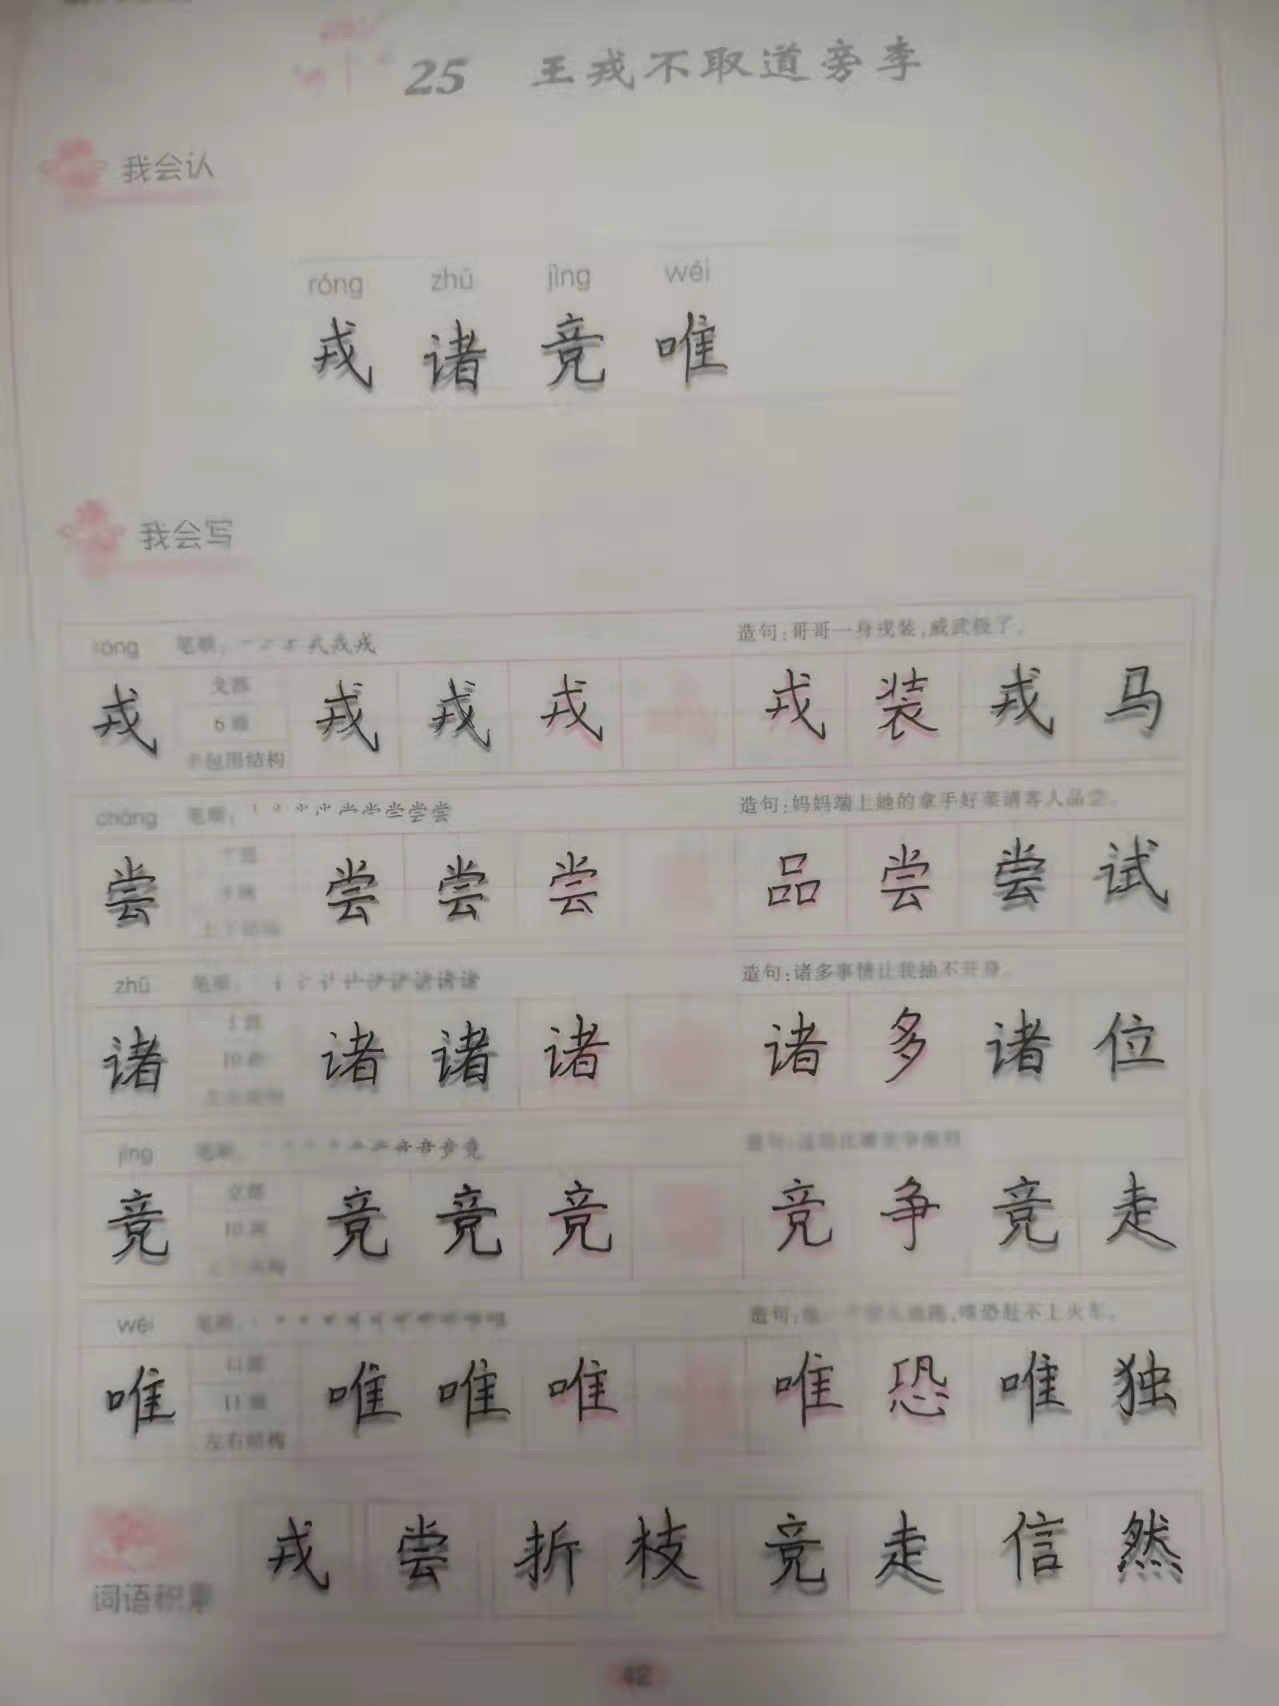 25 王戎不取道旁李
我会认
róng zhū jìng wéi
戎 诸 竞 唯
我会写
róng 笔顺: 造句:哥哥一身戎装,威武极了。
戈部
6画
半包围结构
戎 戎 戎 戎 戎 装 戎 马
cháng 笔顺: 造句:妈妈端上她的拿手好菜请客人品尝。
上下结构
尝 尝 尝 尝 品 尝 尝 试
zhū 笔顺: 造句:诸多事情让我抽不开身。
10画
左右结构
诸 诸 诸 诸 诸 多 诸 位
jìng 笔顺: 造句:
立部
10画
上下结构
竞 竞 竞 竞 竞 争 竞 走
wéi 笔顺: 造句:他 ,唯恐赶不上火车。
口部
11画
左右结构
唯 唯 唯 唯 唯 恐 唯 独
词语积累
戎 尝 折 枝 竞 走 信 然
42